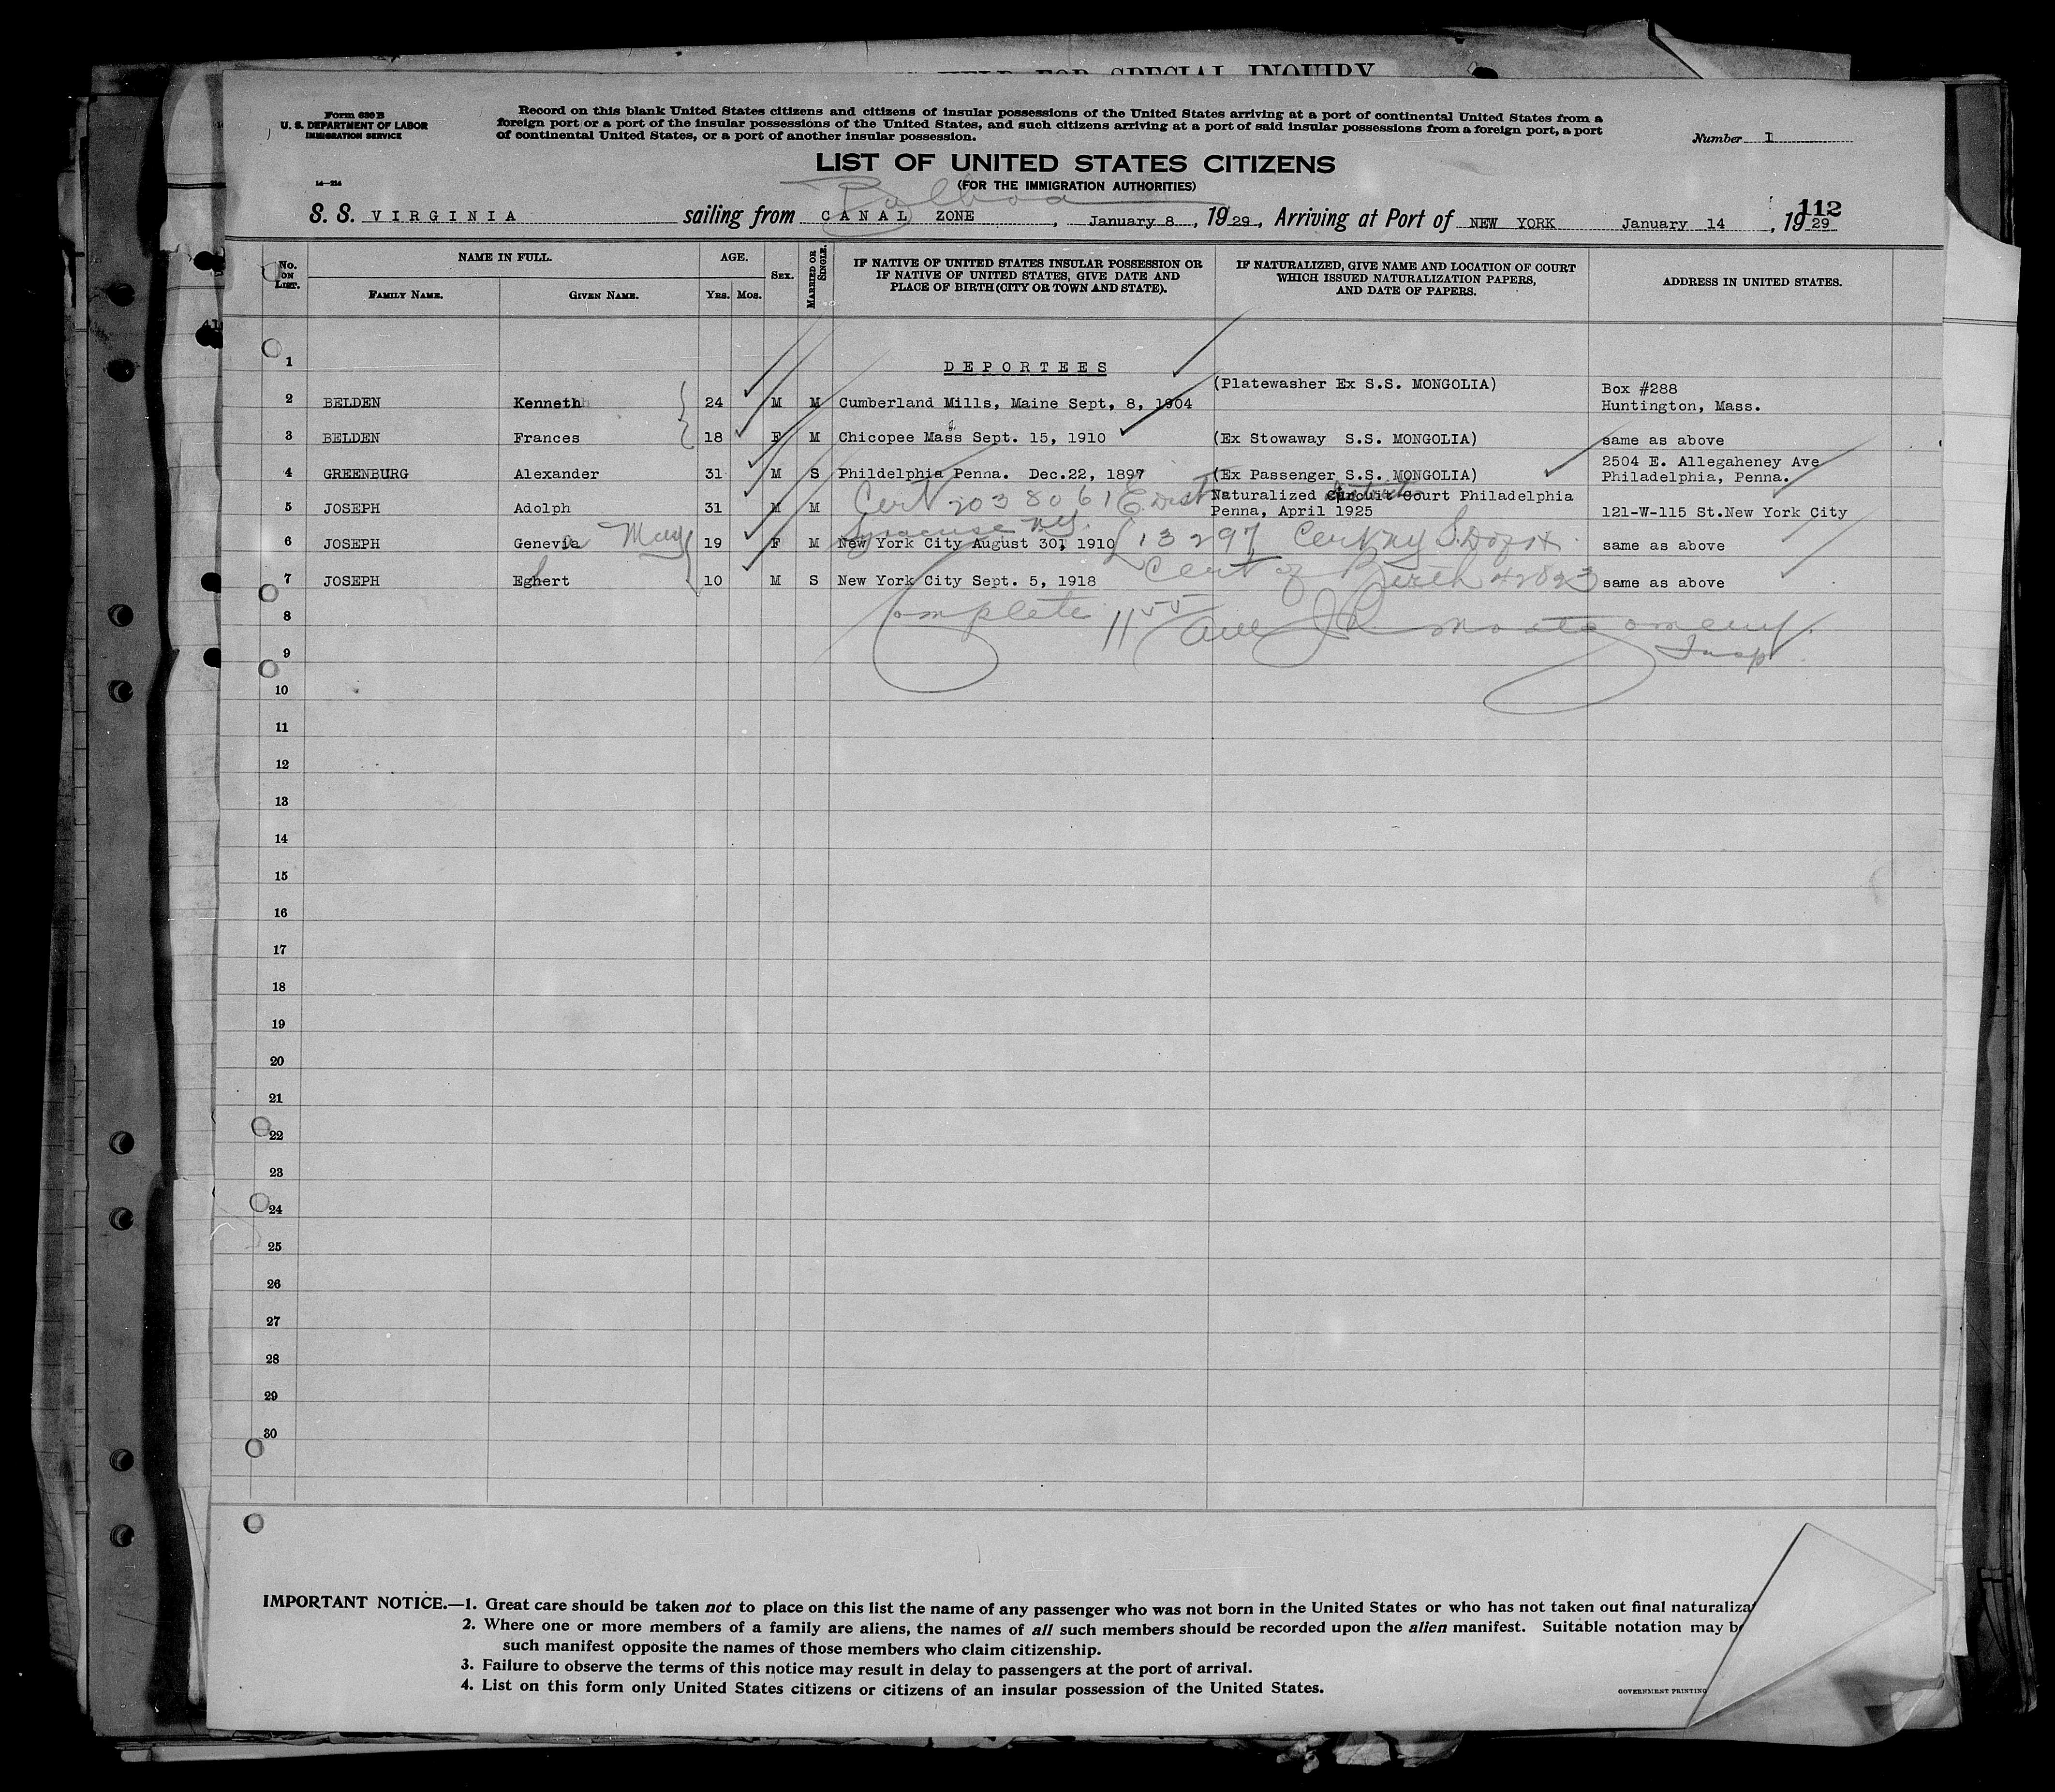 HELD FOR SPECIAL INQUIRY
Form 630 B
U. S. DEPARTMENT OF LABOR
IMMIGRATION SERVICE
Record on this blank United States citizens and citizens of insular possessions of the United States arriving at a port of continental United States from a
foreign port or a port of the insular possessions of the United States, and such citizens arriving at a port of said insular possessions from a foreign port, a port
of continental United States, or a port of another insular possession.
Number 1
LIST OF UNITED STATES CITIZENS
(FOR THE IMMIGRATION AUTHORITIES)
Balboa
112
S. S. VIRGINIA sailing from CANAL ZONE, January 8, 1929, Arriving at Port of NEW YORK January 14, 1929
No. ON LIST.
NAME IN FULL.
FAMILY NAME. GIVEN NAME.
AGE.
YRS. MOS.
SEX.
MARRIED OR SINGLE.
IF NATIVE OF UNITED STATES INSULAR POSSESSION OR
IF NATIVE OF UNITED STATES, GIVE DATE AND
PLACE OF BIRTH (CITY OR TOWN AND STATE).
IF NATURALIZED, GIVE NAME AND LOCATION OF COURT
WHICH ISSUED NATURALIZATION PAPERS,
AND DATE OF PAPERS.
ADDRESS IN UNITED STATES.
1 DEPORTEES
(Platewasher Ex S.S. MONGOLIA) Box #288
2 BELDEN Kenneth 24 M M Cumberland Mills, Maine Sept, 8, 1904 Huntington, Mass.
3 BELDEN Frances 18 F M Chicopee Mass Sept. 15, 1910 (Ex Stowaway S.S. MONGOLIA) same as above
2504 E. Allegaheney Ave
4 GREENBURG Alexander 31 M S Phildelphia Penna. Dec.22, 1897 (Ex Passenger S.S. MONGOLIA) Philadelphia, Penna.
Cert 2038061 E. Dist Naturalized Circuit Court Philadelphia
5 JOSEPH Adolph 31 M M Penna, April 1925 121-W-115 St.New York City
Syracuse NY.
6 JOSEPH Genevia May 19 F M New York City August 30, 1910 13297 Cert NY same as above
Cert of Birth 42823
7 JOSEPH Eghert 10 M S New York City Sept. 5, 1918 same as above
8 Complete 11 55 am J R Montgomery
9 Insp
10
11
12
13
14
15
16
17
18
19
20
21
22
23
24
25
26
27
28
29
30
IMPORTANT NOTICE.—1. Great care should be taken not to place on this list the name of any passenger who was not born in the United States or who has not taken out final naturaliza
2. Where one or more members of a family are aliens, the names of all such members should be recorded upon the alien manifest. Suitable notation may be
such manifest opposite the names of those members who claim citizenship.
3. Failure to observe the terms of this notice may result in delay to passengers at the port of arrival.
4. List on this form only United States citizens or citizens of an insular possession of the United States.
GOVERNMENT PRINTING